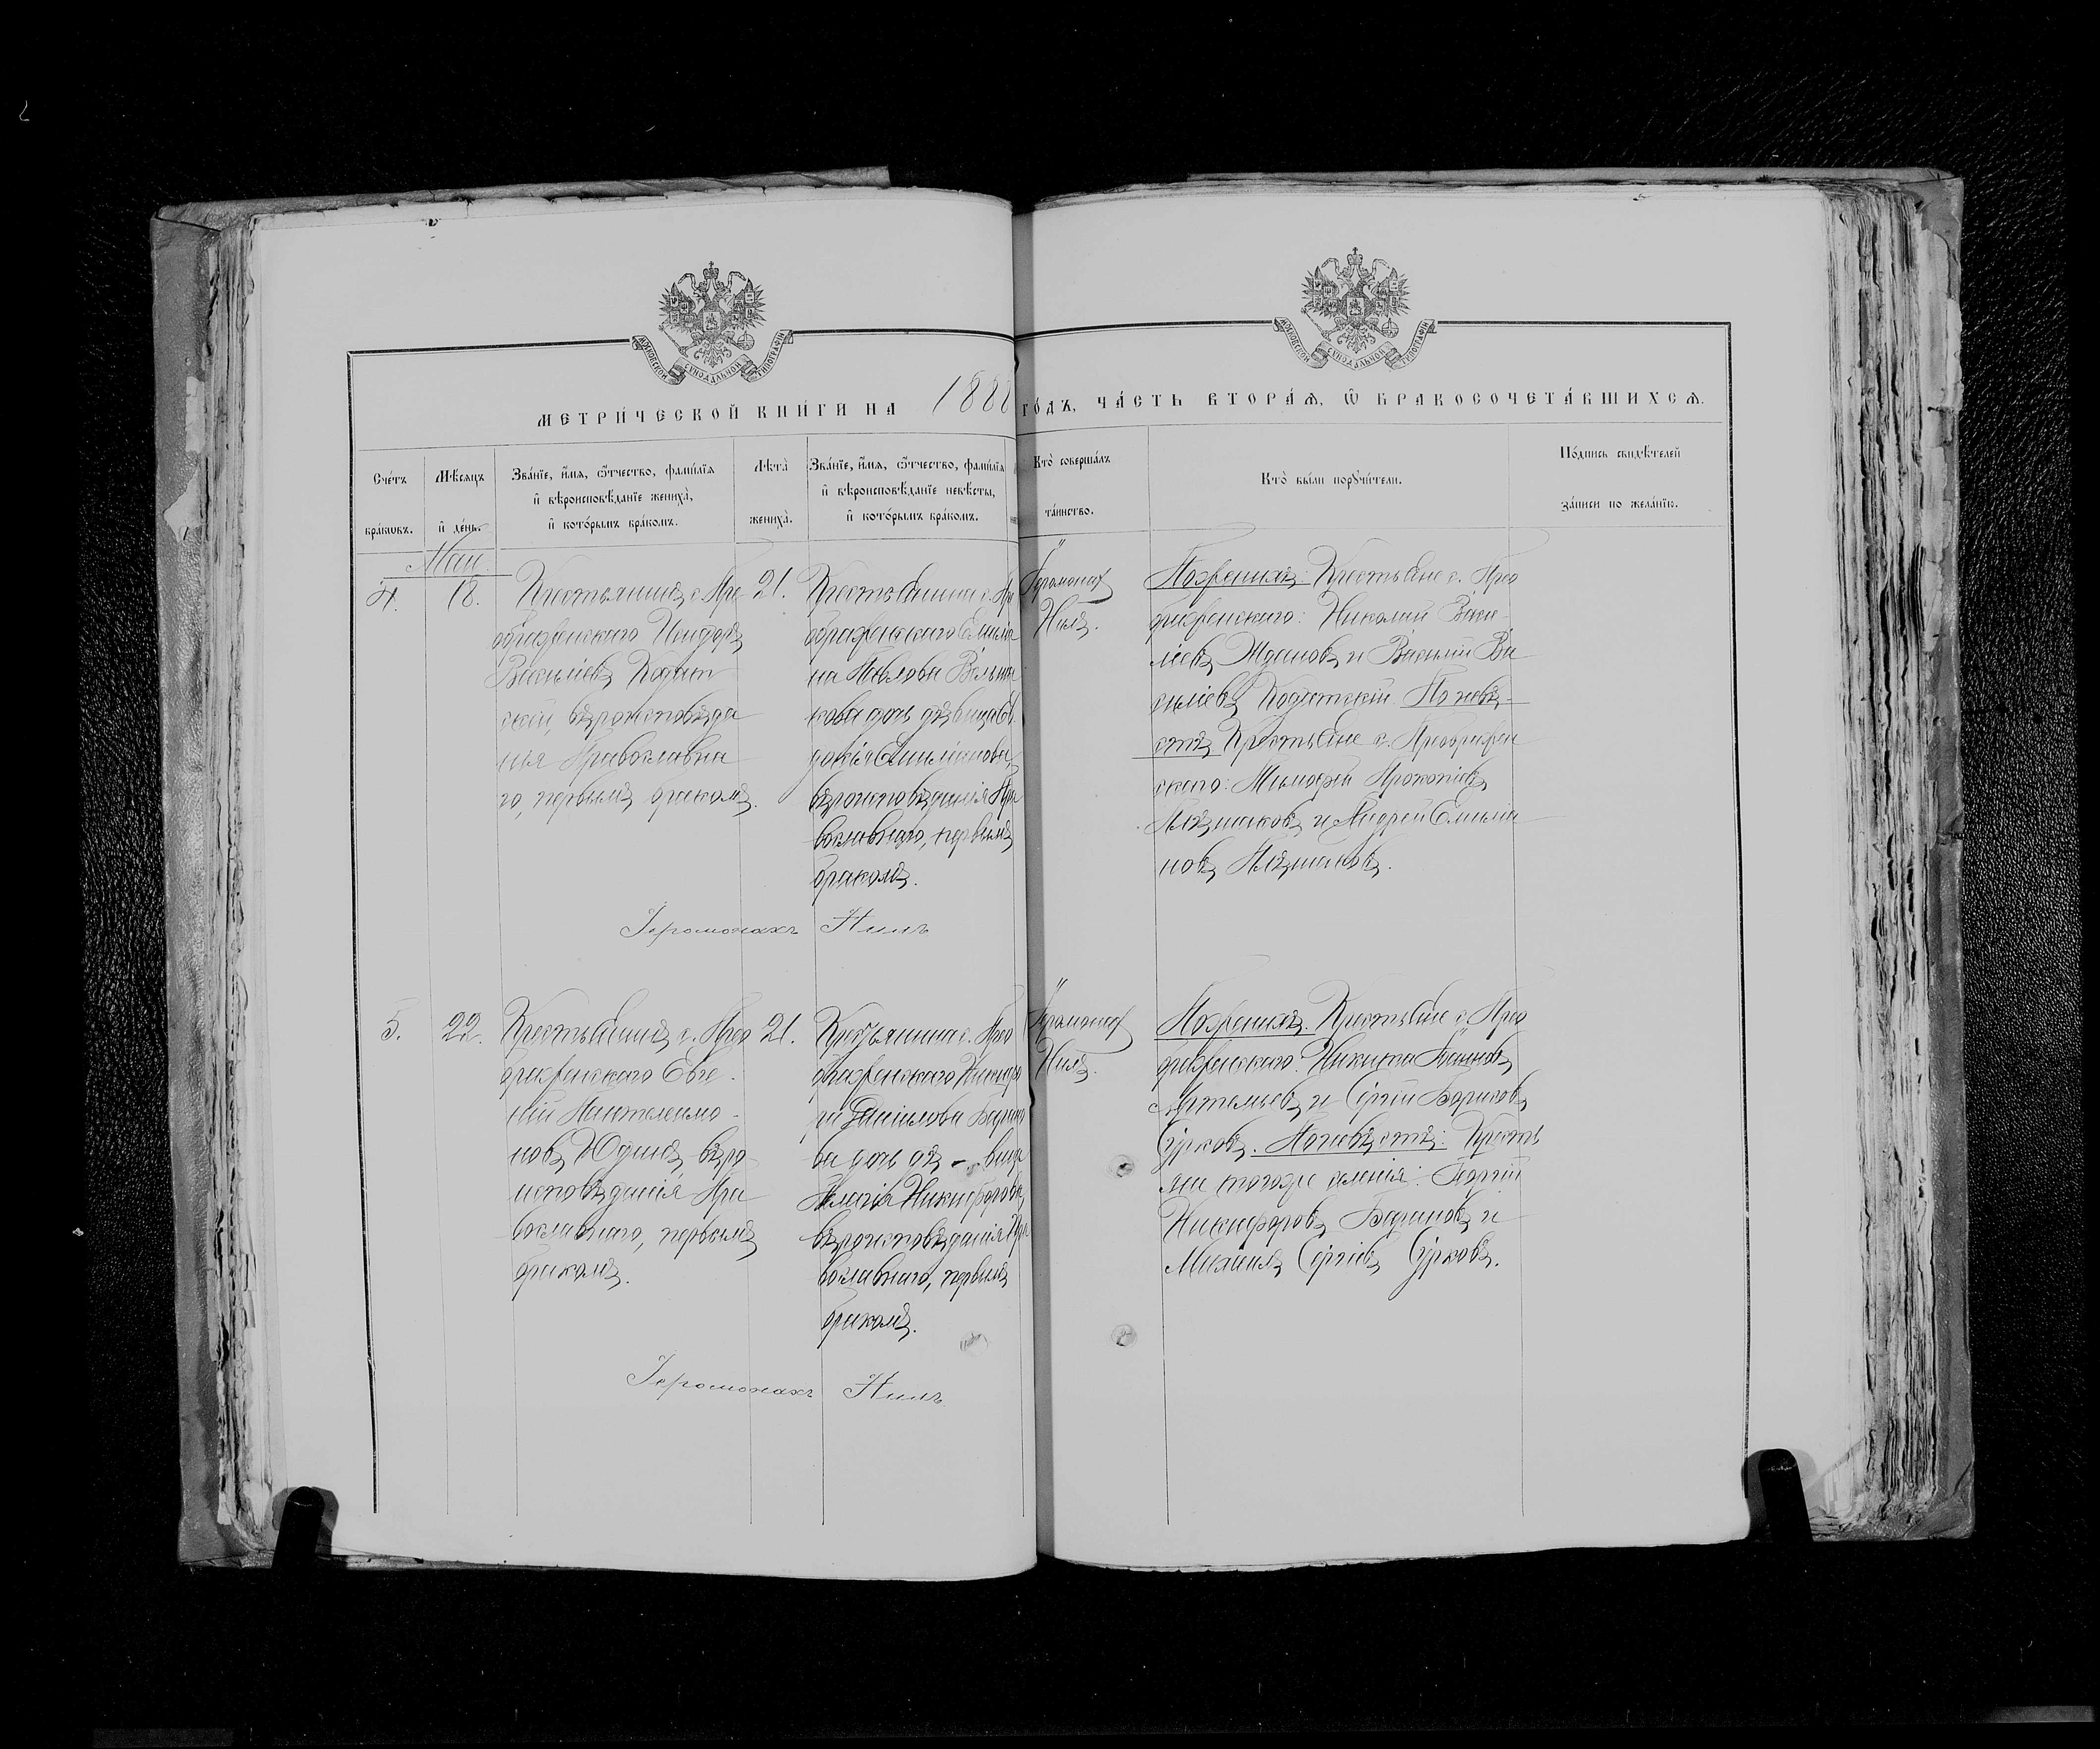 МОСКОВСКОЙ СѴНОДАЛЬНОЙ ТИПОГРАФІИ
МОСКОВСКОЙ СѴНОДАЛЬНОЙ ТИПОГРАФІИ
МЕТРИ́ЧЕСКОЙ КНИ́ГИ НА 1888 ГО́ДЪ, ЧА́СТЬ ВТОРА́Ѧ, Ѽ БРАКОСОЧЕТА́ВШИХСѦ.
Сче́тъ бра́ковъ.
Мѣ́сяцъ и҆ де́нь.
Зва́нїе, и҆́мѧ, ѻ҆́тчество, фами́лїѧ
и҆ вѣроисповѣ́данїе жениха̀,
и҆ кото́рымъ бра́комъ.
Лѣта̀ жениха̀.
Зва́нїе, и҆́мѧ, ѻ҆́тчество, фами́лїѧ
и҆ вѣроисповѣ́данїе невѣ́сты,
и҆ кото́рымъ бра́комъ.
Кто̀ соверша́лъ
та́инство.
Кто̀ бы́ли порꙋчи́тели.
По́дпись свидѣ́телей
за́писи по жела́нїю.
Маи
4.
18.
Крестьянинъ с. Пре
ображенскаго
Василіевъ
скій, вѣроисповѣда
нія Православна
го, первымъ бракомъ.
21.
Крестьянина с. Пре
ображенскаго Емилія
на Павлова
кова дочь дѣвица Ев
докія Емиліянова,
вѣроисповѣданія Пра
вославнаго, первымъ
бракомъ.
Іеромонах
Нилъ.
По женихѣ: Крестьяне с. Прео
браженскаго: Николай Васи
ліевъ Ждановъ и Василій Ва
силіевъ По невѣ-
стѣ Крестьяне с. Преображен
скаго: Тимофей Прокопіевъ
и Андрей Емилія
новъ
Іеромонахъ Нилъ
5.
22.
Крестьянинъ с. Прео
браженскаго Евге
ній Пантелеимо
новъ Юдинъ, вѣро
исповѣданія Пра
вославнаго, первымъ
бракомъ.
21.
Крестьянина с. Прео
браженскаго Никифо
ра Даніилова Барано
ва дочь дѣ-вица
Пелагія Никифорова,
вѣроисповѣданія Пра
вославнаго, первымъ
бракомъ.
Іеромонах
Нилъ.
По женихѣ. Крестьяне с. Прео
браженскаго: Никита
Артемьевъ и Сергій Борисовъ
Сурковъ. По невѣстѣ: Кресть
яне тогоже селенія: Георгій
Никифоровъ Барановъ и
Михаилъ Сергіевъ Сурковъ.
Іеромонахъ Нилъ